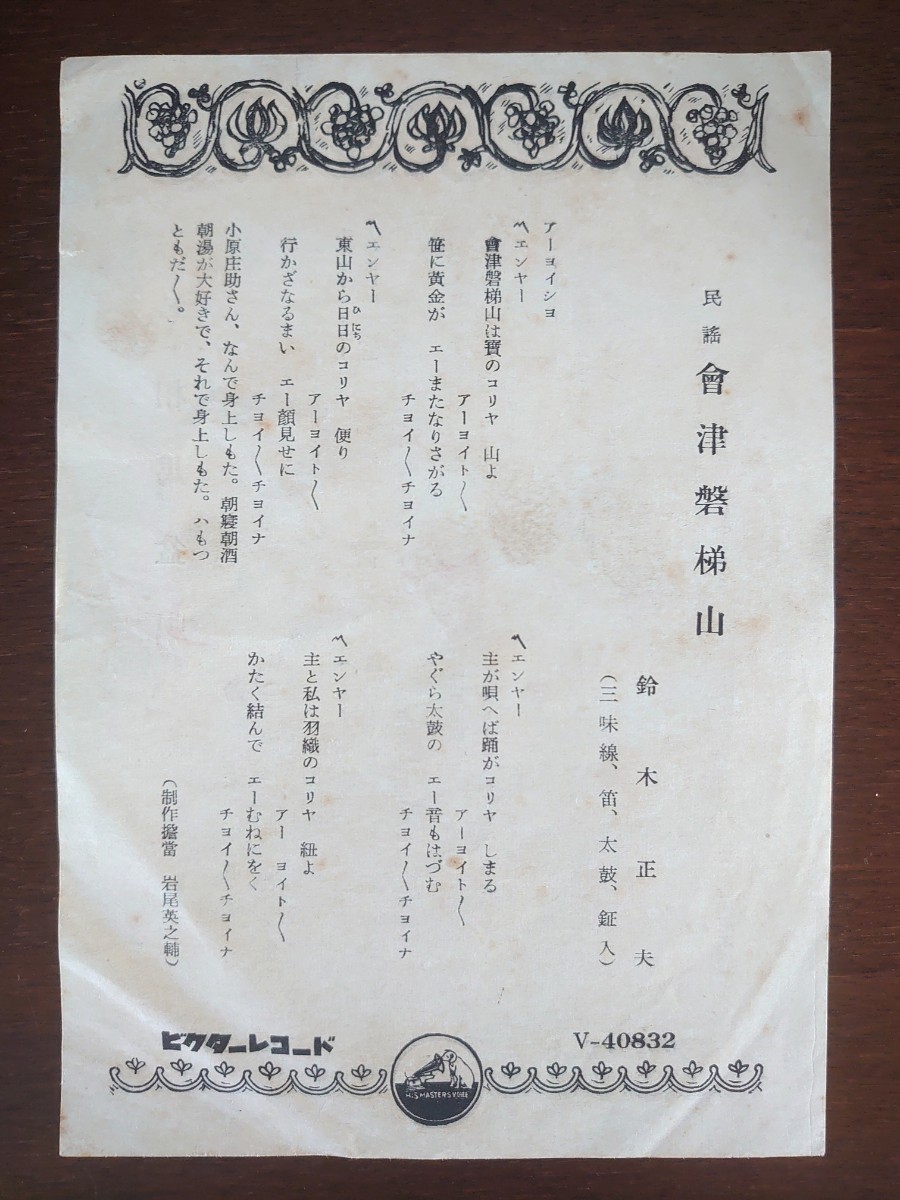 民謠 會津磐梯山
鈴木正夫
(三味線、笛、太鼓、鉦入)
アーヨイショ
〽エンヤー
會津磐梯山は寶のコリヤ 山よ
アーヨイト〳〵
笹に黃金が エーまたなりさがる
チヨイ〳〵チヨイナ
〽エンヤー
東山から日日のコリヤ 便り
ひにち
アーヨイト〳〵
行かざなるまい エー顏見せに
チヨイ〳〵チヨイナ
小原庄助さん、なんで身上しもた。朝寢朝酒
朝湯が大好きで、それで身上しもた。ハもつ
ともだ〳〵。
〽エンヤー
主が唄へば踊がコリヤ しまる
アーヨイト〳〵
やぐら太鼓の エー音もはづむ
チヨイ〳〵チヨイナ
〽エンヤー
主と私は羽織のコリヤ 紐よ
アー ヨイト〳〵
かたく結んで エーむねにをく
チヨイ〳〵チヨイナ
(制作擔當 岩尾英之輔)
ビクターレコード
V-40832
HIS MASTERS VOICE